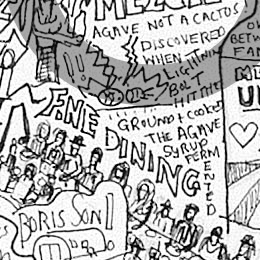 MEZCAL
AGAVE NOT A CACTUS
DISCOVERED
WHEN
LIGHTNING
BOLT
HIT THE
GROUND + COOKED
THE AGAVE
SYRUP
FERMENTED
FINE DINING
BORIS SON!